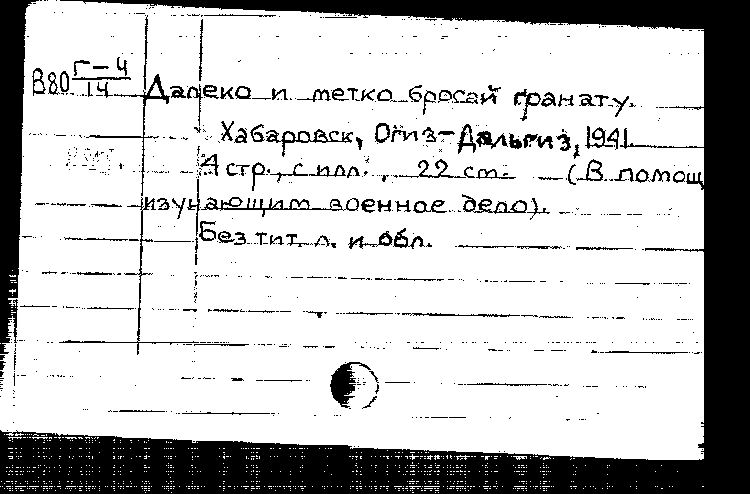 В80 Г-4/14 Далеко и метко бросай гранату.
Хабаровск, Огиз-Дальгиз, 1941.
4 стр., с илл., 22 cm. (В помощ
изучающим военное дело).
Без тит. л. и обл.